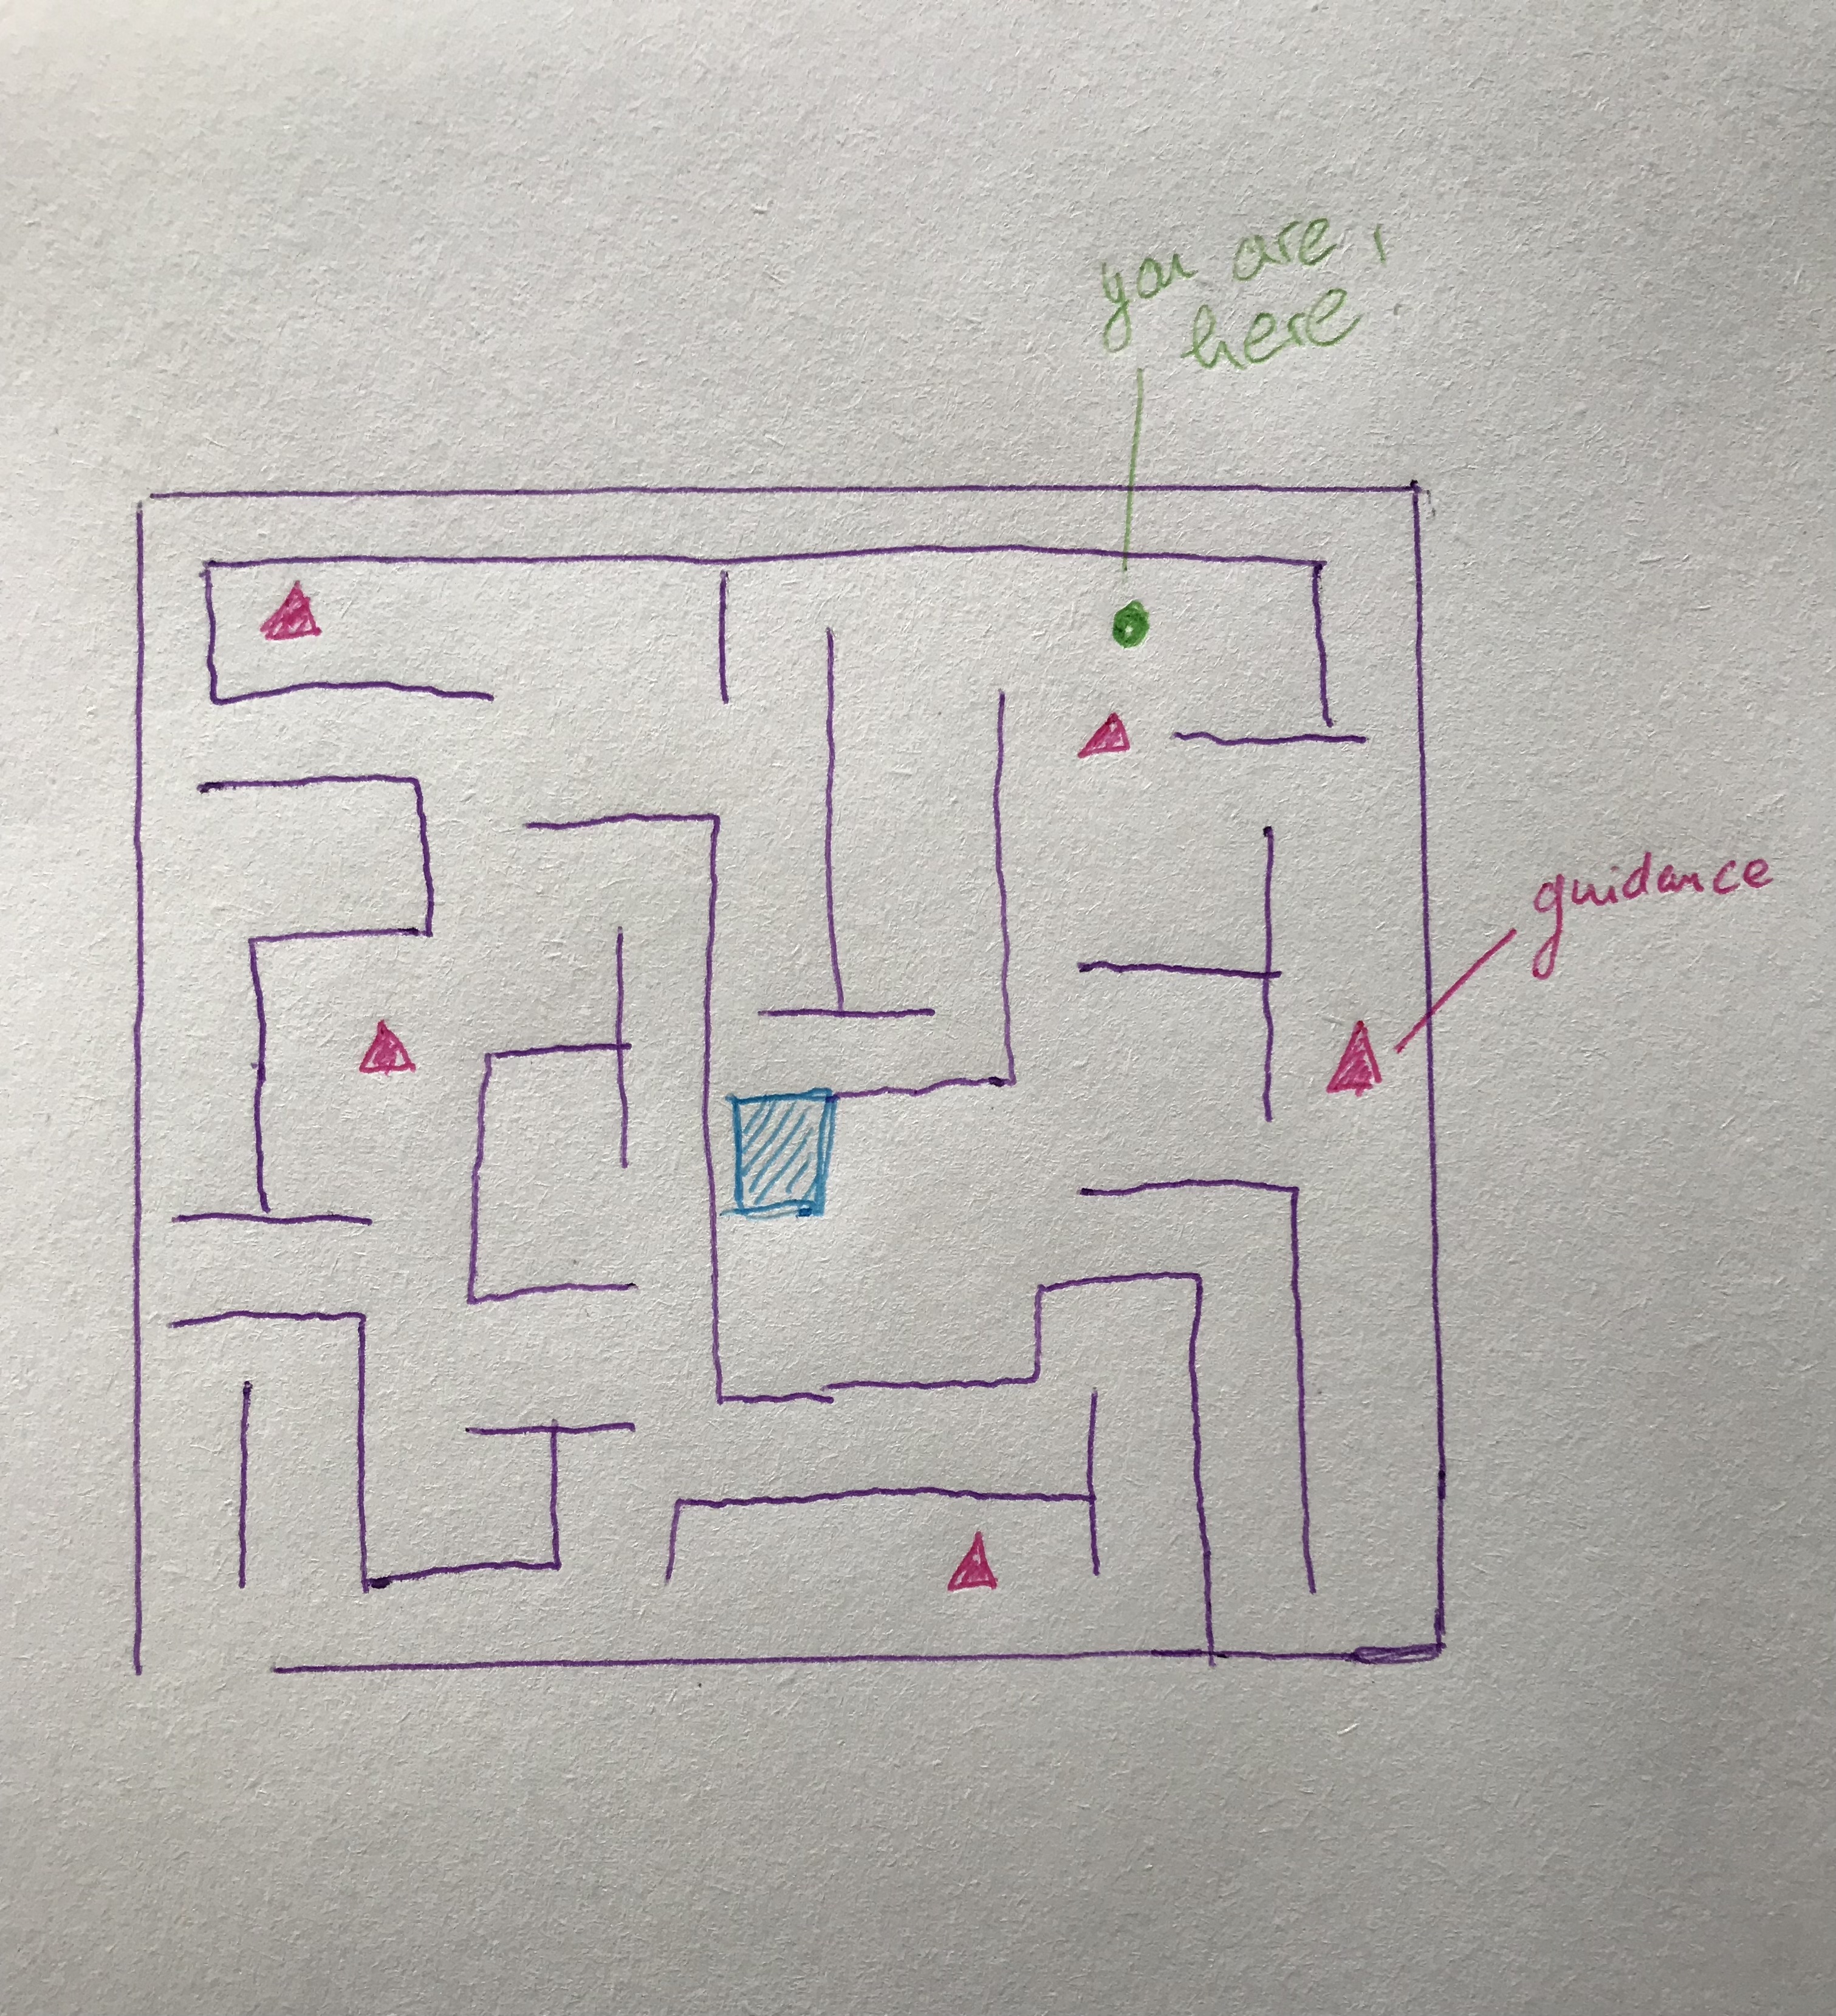 you are
here
guidance